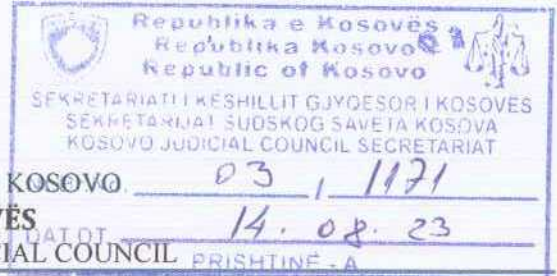 Republika e Kosovës
Republika Kosovo
Republic of Kosovo
SEKRETARIATI I KËSHILLIT GJYQËSOR I KOSOVËS
SEKRETARIJAT SUDSKOG SAVETA KOSOVA
KOSOVO JUDICIAL COUNCIL SECRETARIAT
KOSOVO
03 / 1171
VËS
DAT.DT. 14. 08. 23
CIAL COUNCIL
PRISHTINË - A